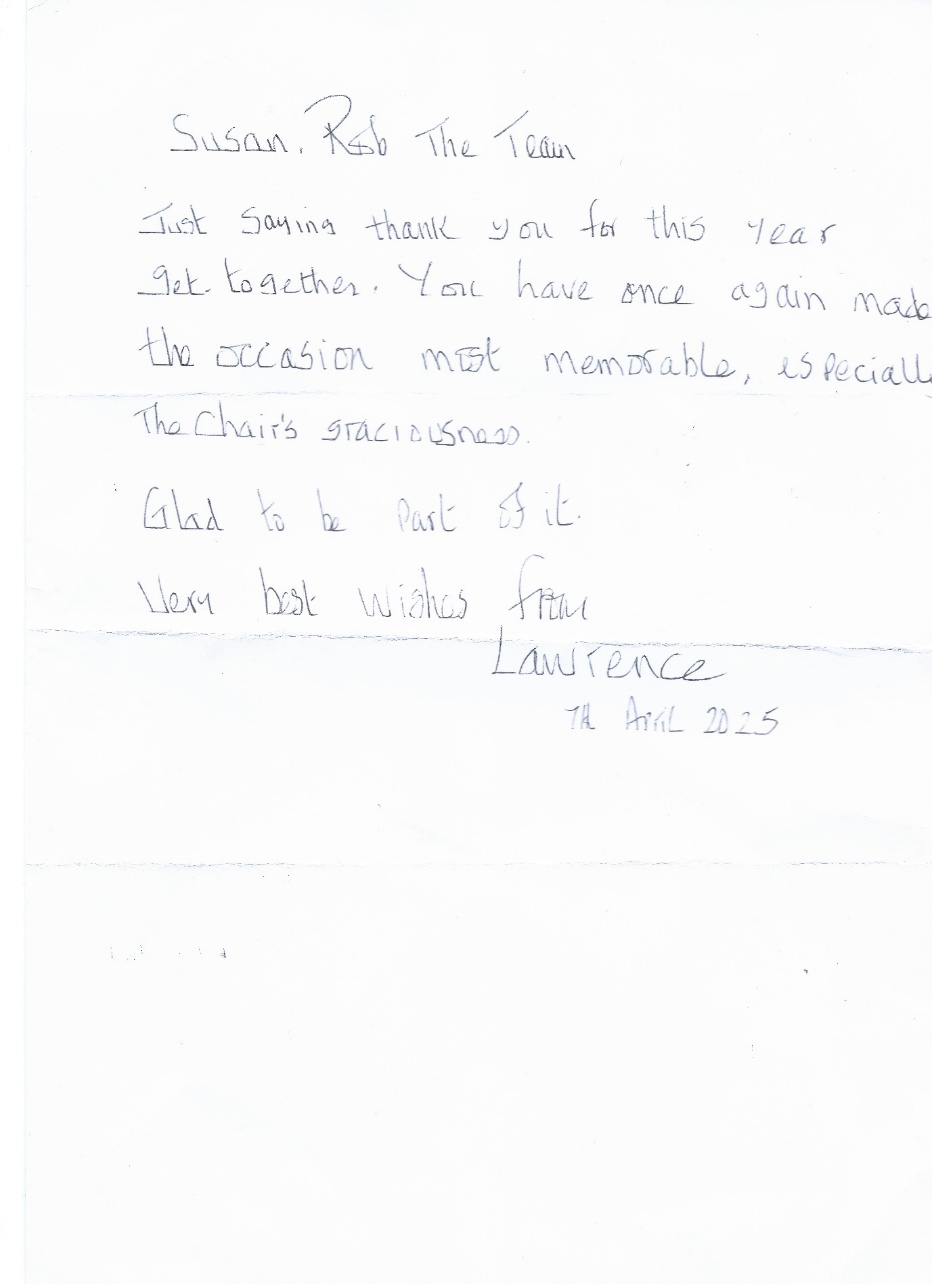 Susan, Rob The Team
Just saying thank you for this year
get-together. You have once again made
the occasion most memorable, especially
The Chair's graciousness.
Glad to be part of it.
Very best wishes from
Lawrence
7th April 2025